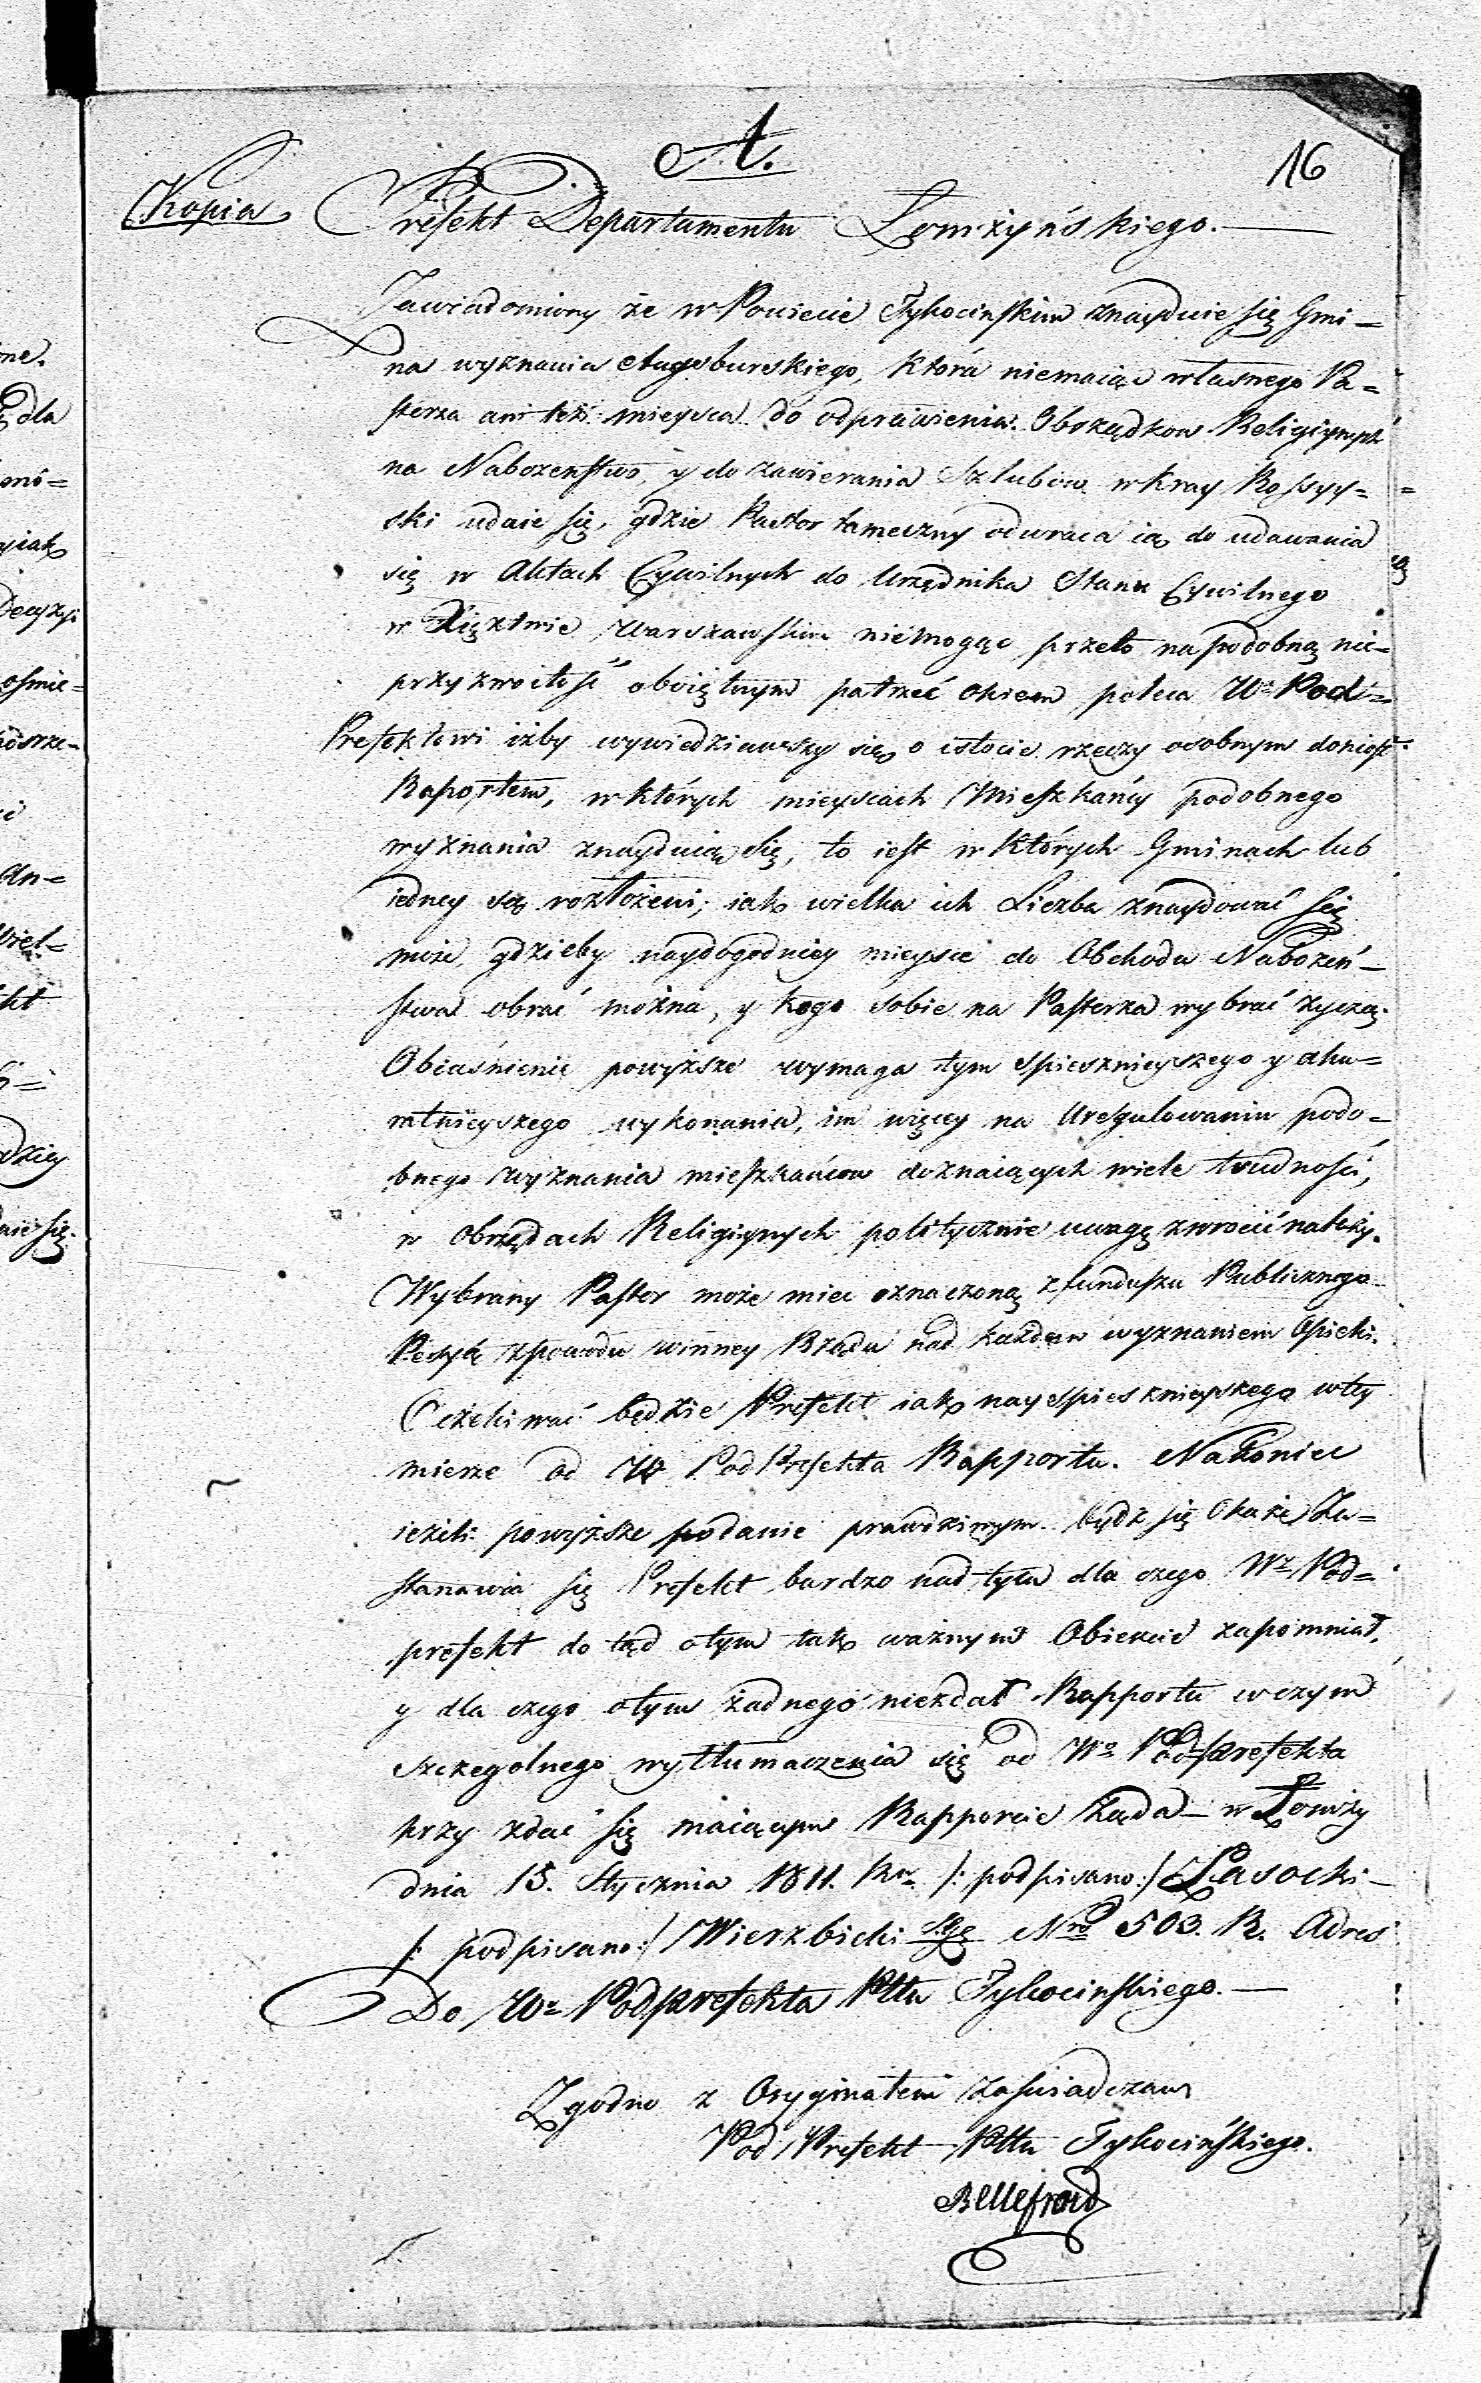 A.
16
Kopia
Prefekt Departamentu Łomżyńskiego.
Zawiadomiony że w Powiecie Tykocinskim znayduie się Gmi-
na wyznania Augsburskiego, która niemaiąc własnego Pa-
sterza ani też mieysca do odprawienia Obrządkow Religiynych
na Nabożenstwo, y do zawierania Szlubow w Kray Rossyy-
ski udaie się, gdzie Pastor tameczny odwraca ią do udawania
się w Aktach Cywilnych do Urzędnika Stanu Cywilnego
w Xięztwie Warszawskim niemogąc przeto na podobną nie-
przyzwoitość oboiętnym patrzeć okiem poleca Wu Pod-
Prefektowi iżby wywiedziawszy się o istocie rzeczy osobnym doniosł
Raportem, w których mieyscach Mieszkańcy podobnego
wyznania znayduią się, to iest w których Gminach lub
iedney są rozłożeni; iak wielka ich Liczba znaydować się
może, gdzieby naydogodniey mieysce do Obchodu Nabożeń-
stwa obrać można, y kogo sobie na Pasterza wybrać życzą.
Obiaśnienie powyższe wymaga tym spiesznieyszego y aku-
ratnieyszego wykonania, im więcey na Uregulowaniu podo-
bnego wyznania mieszkańcow doznaiących wiele trudności,
w Obrzędach Religiynych politycznie uwagę zwrocić należy.
Wybrany Pastor może miec oznaczoną z funduszu Publicznego
Pensyę z powodu winney Rządu nad każdem wyznaniem Opieki.
Oczekiwać będzie Prefekt iak nayspiesznieyszego w tey
mierze od W Pod Prefekta Rapportu. Nakoniec
ieżeli powyższe podanie prawdziwym bydź się Okaże Za-
stanawia się Prefekt bardzo nad tym dla czego Wy Pod-
prefekt do tąd o tym tak ważnym Obiekcie zapomniał,
y dla czego o tym żadnego niezdał Rapportu w czym
szczegolnego wytłumaczenia się od Wo Podprefekta
przy zdać się maiącym Rapporcie Żąda - w Łomży
dnia 15. Stycznia 1811. Ru /: podpisano :/ Lasocki -
/: podpisano :/ Wierzbicki S.Jg Nro 503. R. Adres
Do Wo Podprefekta Pttu Tykocinskiego. -
Zgodno z Oryginałem Zaświadczam
Pod Prefekt Pttu Tykocińskiego.
Bellefroid